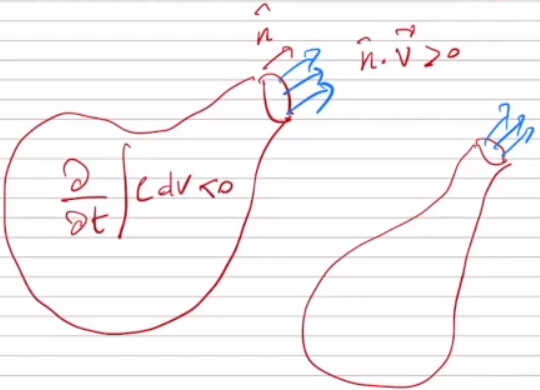 n̂
n̂ · v⃗ > 0
∂/∂t ∫ ρ dV < 0